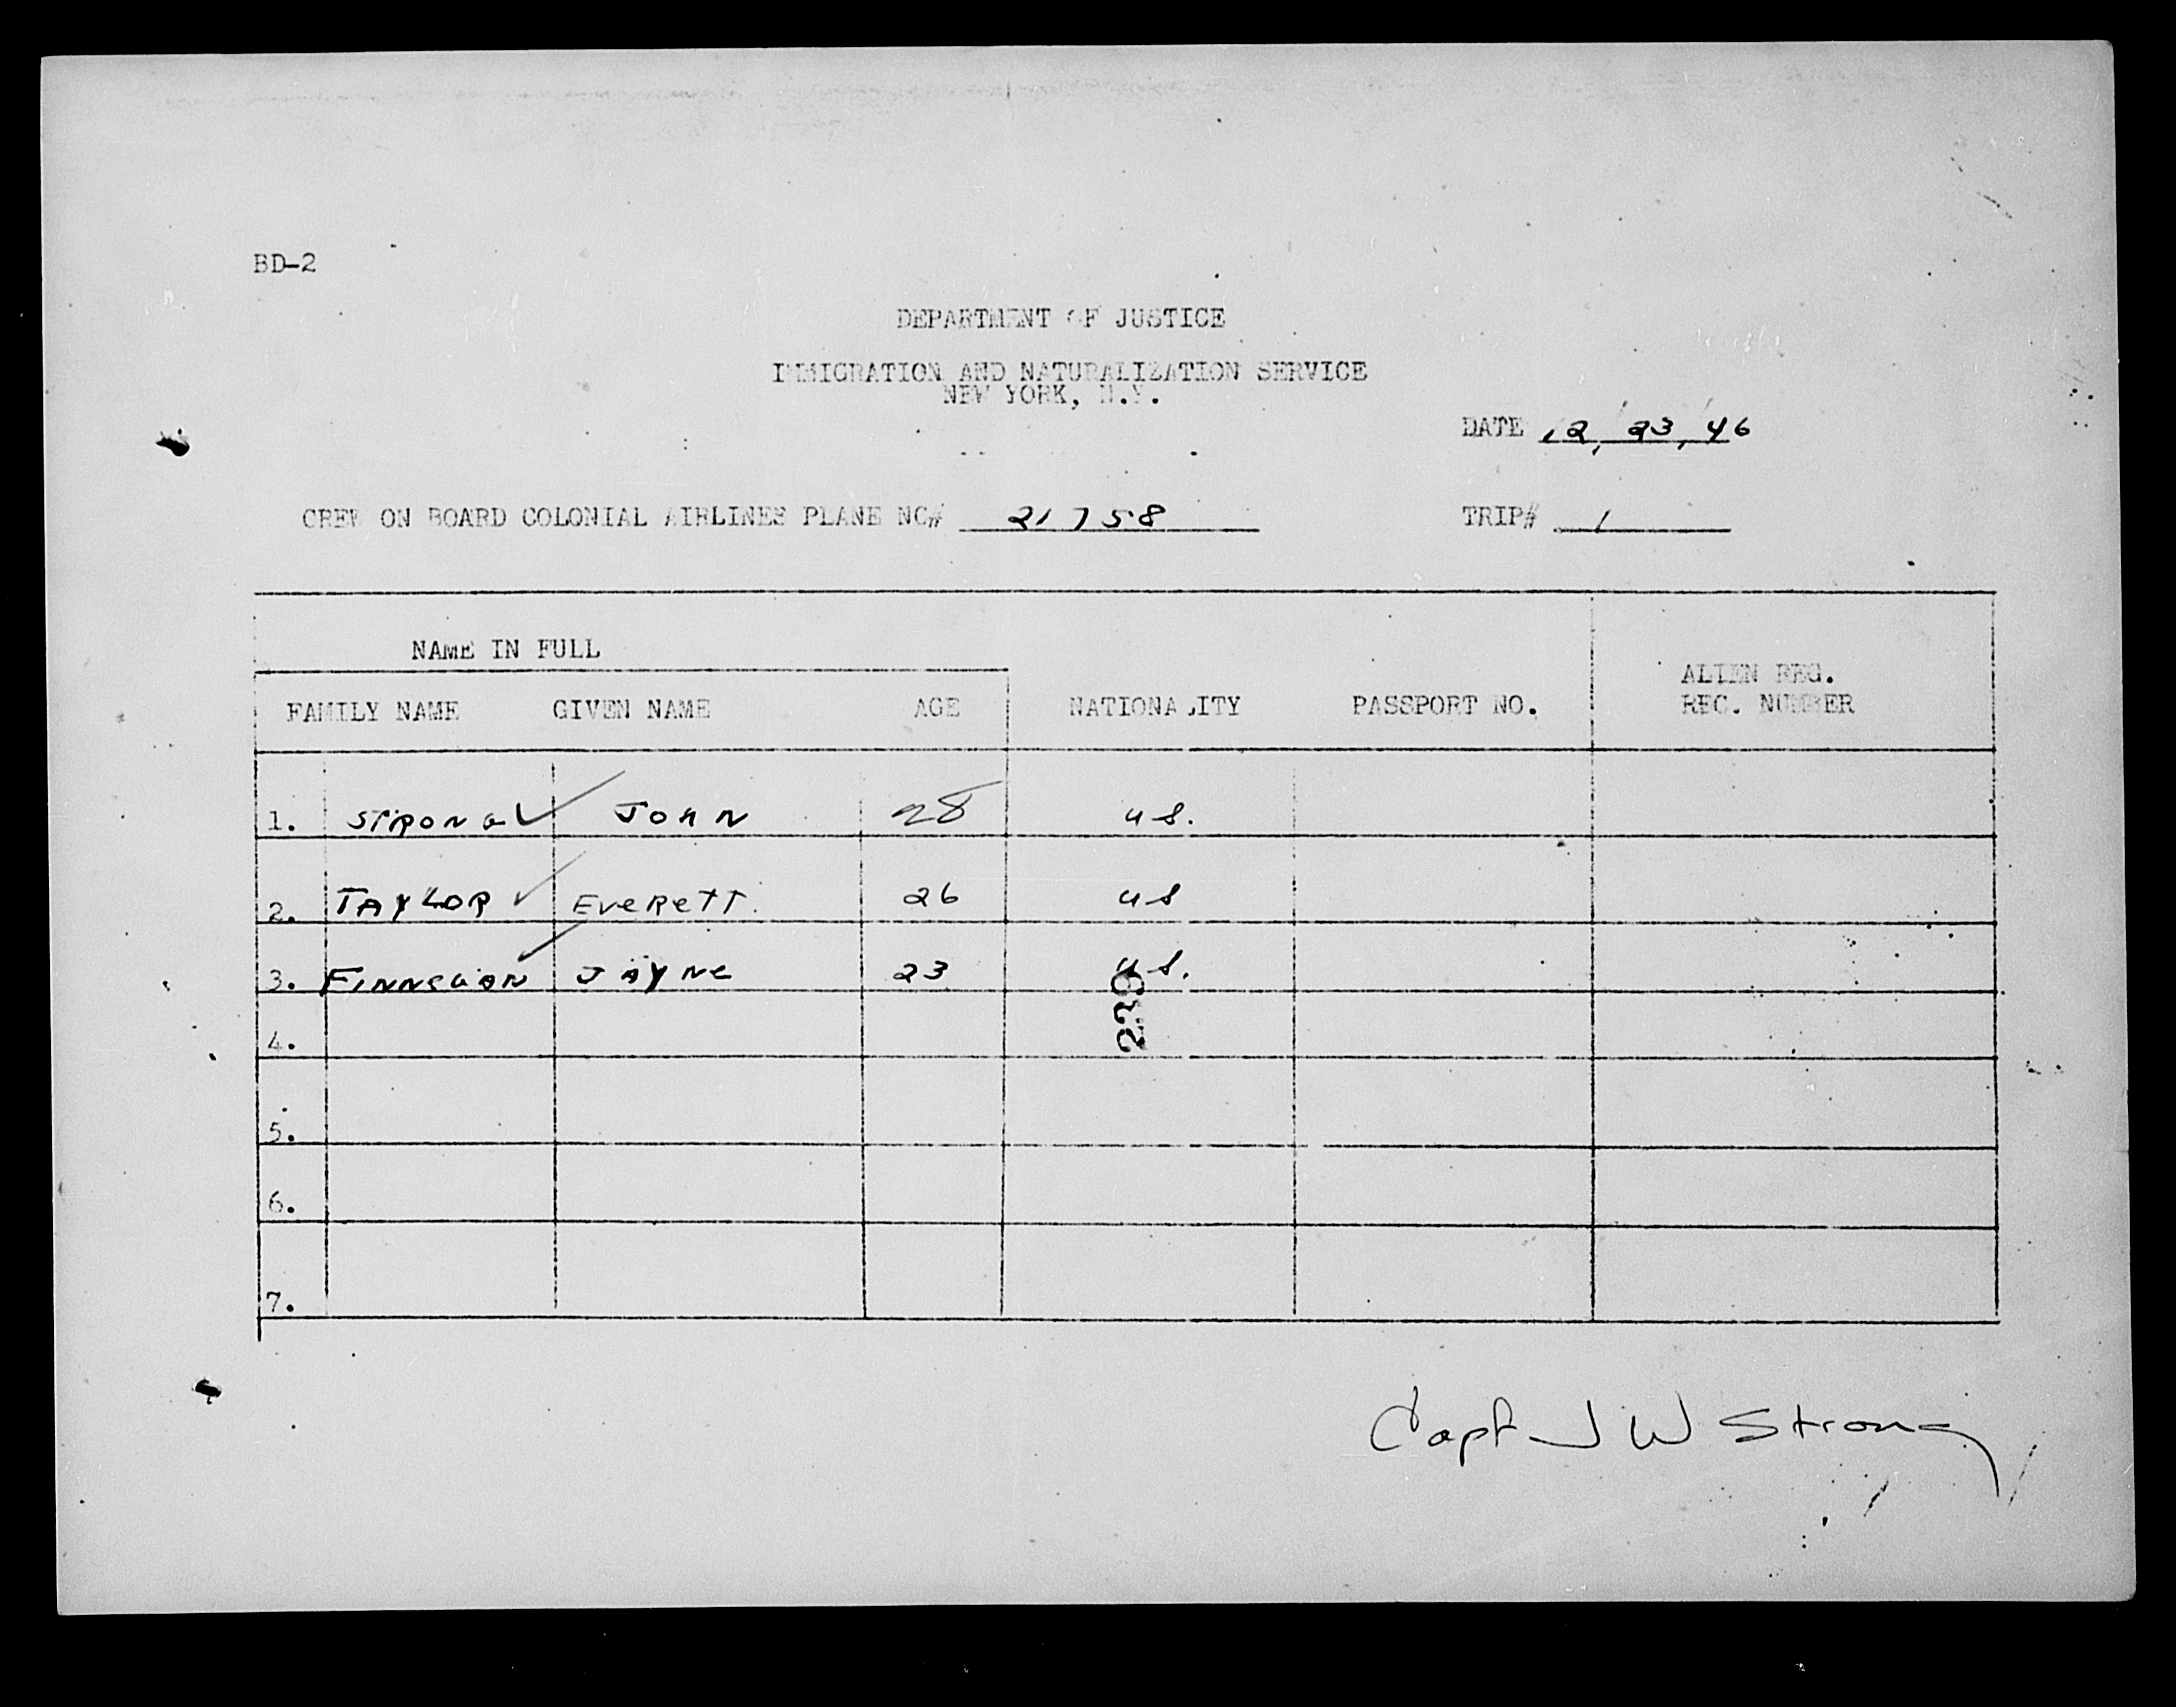 BD-2
DEPARTMENT OF JUSTICE
IMMIGRATION AND NATURALIZATION SERVICE
NEW YORK, N.Y.
DATE 12, 23, 46
CREW ON BOARD COLONIAL AIRLINES PLANE NO# 21758 TRIP# 1
NAME IN FULL
ALIEN REG.
FAMILY NAME GIVEN NAME AGE NATIONALITY PASSPORT NO. REC. NUMBER
1. STRONG JOHN 28 US.
2. TAYLOR EVERETT. 26 US
3. FINNEGAN JAYNE 23 US.
239
4.
5.
6.
7.
Capt J W Strong